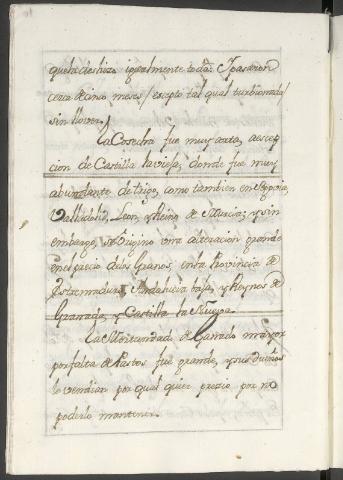 que la deshizo igualmente toda: Y pasaron
cerca de cinco meses / escepto tal qual turbionada /
sin llover.
La Cosecha fue muy corta, a escep
cion de Castilla la vieja, donde fue muy
abundante de trigo, como tambien en Segovia,
Valladolid, Leon, y Reino de Murcia; y sin
embargo, se origino una alteracion grande
en el precio de los Granos, en la Provincia de
Estremadura, Andalucia baja, y Reynos de
Granada, y Castilla la Nueva.
La Mortandad de Ganado mayor
por falta de Pastos fue grande, y sus dueños
lo vendian por qual quier prezio por no
poderlo mantener.